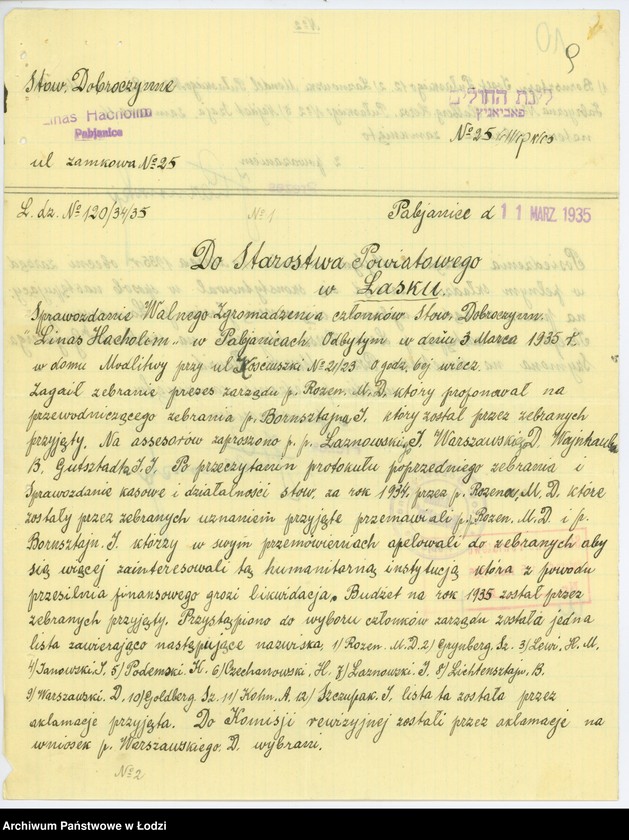 № 2
9
Stow. Dobroczynne
Linas Hacholim
Pabjanice
לינת החולים
פאביאניץ
№ 25
ul zamkowa № 25
L. dz. № 120/34/35
№ 1
Pabjanice d 11 MARZ. 1935
Do Starostwa Powiatowego
w Łasku.
Sprawozdanie Walnego Zgromadzenia członków Stow. Dobroczynn.
"Linas Hacholem" w Pabjanicach Odbytym w dniu 3 Marca 1935 r.
w domu Modlitwy przy ul Kościuszki № 21/23 o godz. 6ej wiecz.
Zagaił zebranie prezes zarządu p. Rozen. M. D. który proponował na
przewodniczącego zebrania p. Bornsztajna J. który został przez zebranych
przyjęty. Na assesorów zaproszono p. p. Łaznowski, J. Warszawskiego D. Wajnhaub
B. Gutsztadta, J. J. Po przeczytaniu protokułu poprzedniego zebrania i
Sprawozdanie kasowe i działalności stow. za rok 1934. przez p. Rozena, M. D. które
zostały przez zebranych uznaniem przyjęte przemawiali p. Rozen. M. D. i p.
Bornsztajn. J. którzy w swym przemówieniach apelowali do zebranych aby
się więcej zainteresowali tą humanitarną instytucją która z powodu
przesilnia finansowego grozi likwidacja. Budżet na rok 1935 został przez
zebranych przyjęty. Przystąpiono do wyboru członków zarządu została jedna
lista zawierająco następujące nazwiska 1/ Rozen. M. D. 2/ Grynberg. Sz. 3/ Lewi, H. M.
4/ Janowski. J, 5/ Podemski. K. 6/ Czechanowski, H. 7/ Łaznowski. J. 8/ Lichtensztajn, B.
9/ Warszawski. D. 10/ Goldberg. Sz. 11/ Kohn. A. 12/ Szczupak. J. lista ta została przez
aklamacje przyjęta. Do Komisji rewizyjnej zostali przez aklamacje na
wniosek p. Warszawskiego. D. wybrani.
№ 2
Archiwum Państwowe w Łodzi